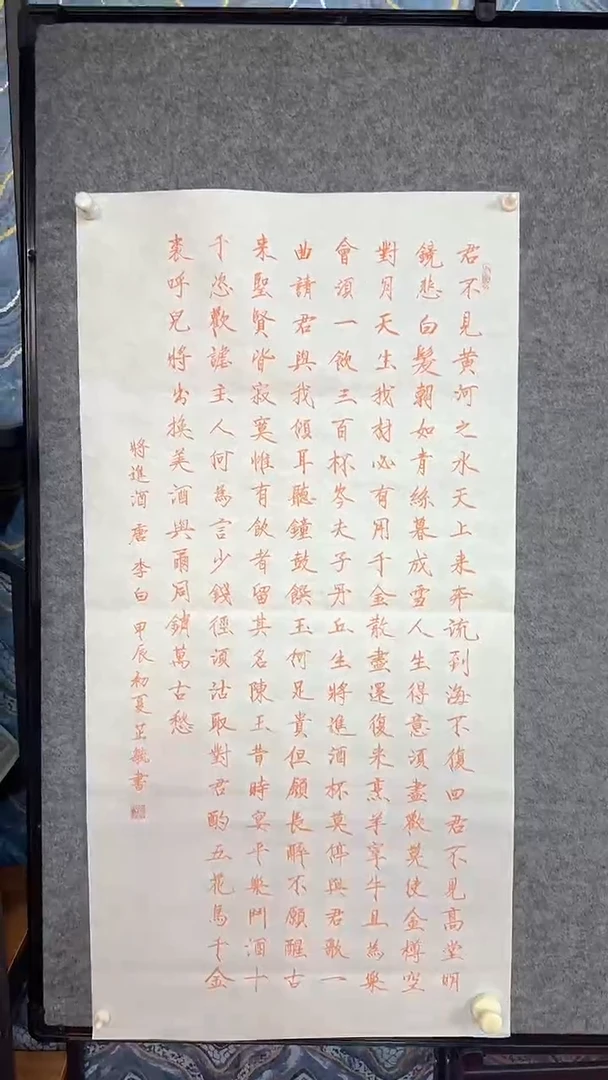 君不見黄河之水天上来奔流到海不復回君不見高堂明
鏡悲白髮朝如青絲暮成雪人生得意須盡歡莫使金樽空
對月天生我材必有用千金散盡還復来烹羊宰牛且為樂
會須一飲三百杯岑夫子丹丘生將進酒杯莫停與君歌一
曲請君與我傾耳聽鐘鼓饌玉何足貴但願長醉不願醒古
来聖賢皆寂寞惟有飲者留其名陳王昔時宴平樂鬥酒十
千恣歡謔主人何為言少錢徑須沽取對君酌五花馬千金
裘呼兒將出換美酒與爾同銷萬古愁
將進酒 唐 李白 甲辰初夏 芷毓書